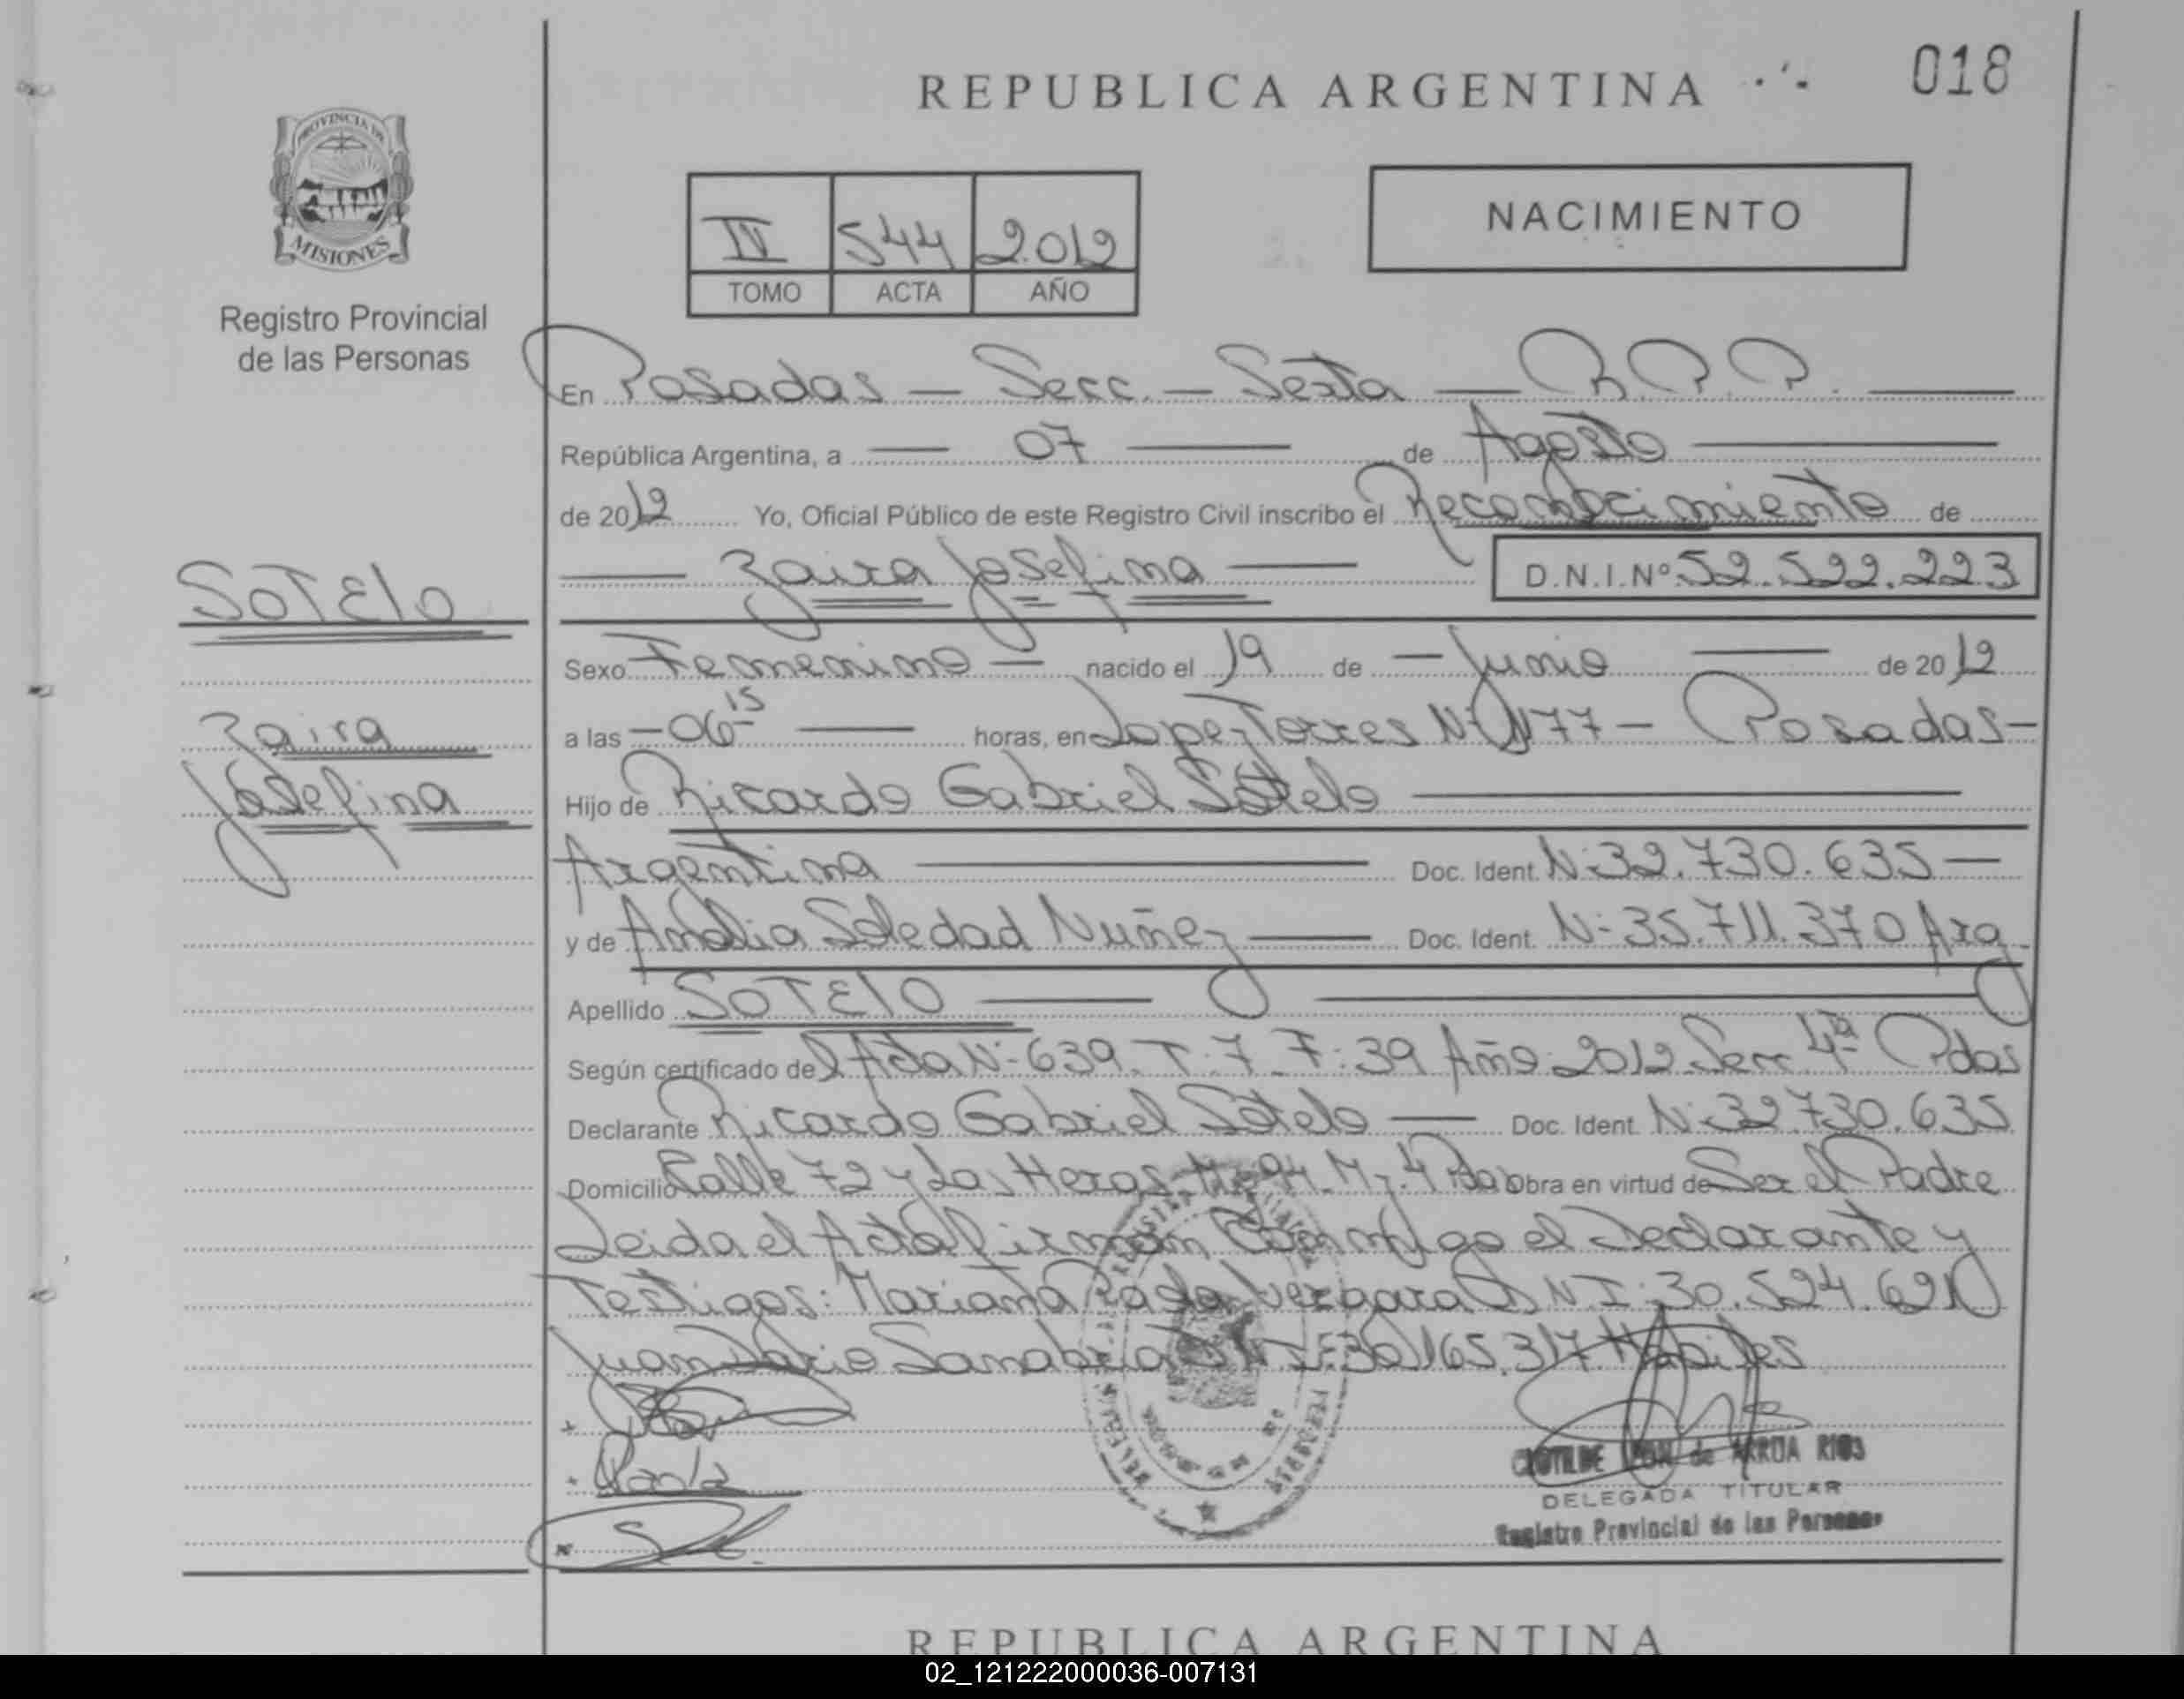 REPUBLICA ARGENTINA
018
PROVINCIA DE
MISIONES
Registro Provincial
de las Personas
IV 544 2.012
TOMO ACTA AÑO
NACIMIENTO
En Posadas — Secc. — Sexta — R.P.P. —
República Argentina, a — 07 — de Agosto —
de 2012 Yo, Oficial Público de este Registro Civil inscribo el Reconocimiento de
— Zaira Josefina — D.N.I.Nº 52.522.223
SOTELO
Zaira
Josefina
Sexo Femenino — nacido el 19 de — Junio — de 2012
a las — 06 15 — horas, en Lopez Torres Nº 1177 — Posadas —
Hijo de Ricardo Gabriel Sotelo —
Argentina — Doc. Ident. Nº 32.730.635 —
y de Amalia Soledad Nuñez — Doc. Ident. Nº 35.711.370 Arg
Apellido SOTELO —
Según certificado del Acta Nº 639. T: 7 F: 39 Año: 2012. Secc 4ª Pdas
Declarante Ricardo Gabriel Sotelo — Doc. Ident. Nº 32.730.635
Domicilio Calle 72 y Las Heras 94. Mz. 4 Obra en virtud de Ser el Padre
Leida el Acta firman Conmigo el Declarante y
Testigos: Mariana Paola Vergara DNI: 30.524.621
Juan Dario Sanabria 165.317. Habiles
Paola
CLOTILDE de ARRUA RIOS
DELEGADA TITULAR
Registro Provincial de las Personas
REPUBLICA ARGENTINA
02_121222000036-007131